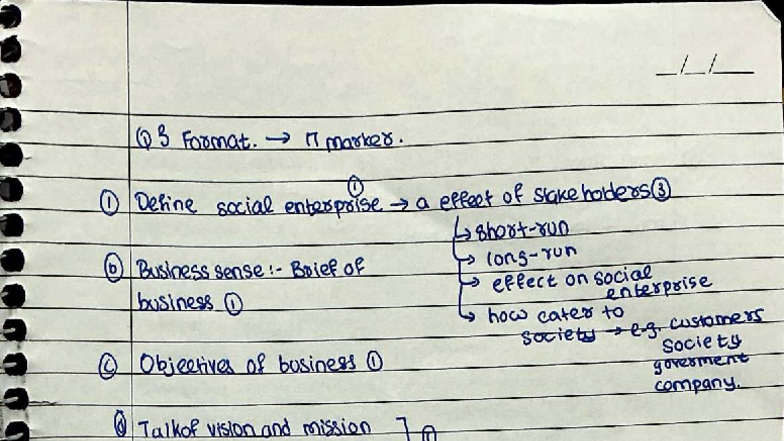 __/__/__
Q3 Format. → 17 marker.
① Define social enterprise ① → a effect of stakeholders ③
↳ short-run
↳ long-run
↳ effect on social enterprise
↳ how cater to society → e.g. customers
society
goverment
company.
ⓑ Business sense :- Brief of
business ①
ⓒ Objectives of business ①
ⓓ Talk of vision and mission ] ①